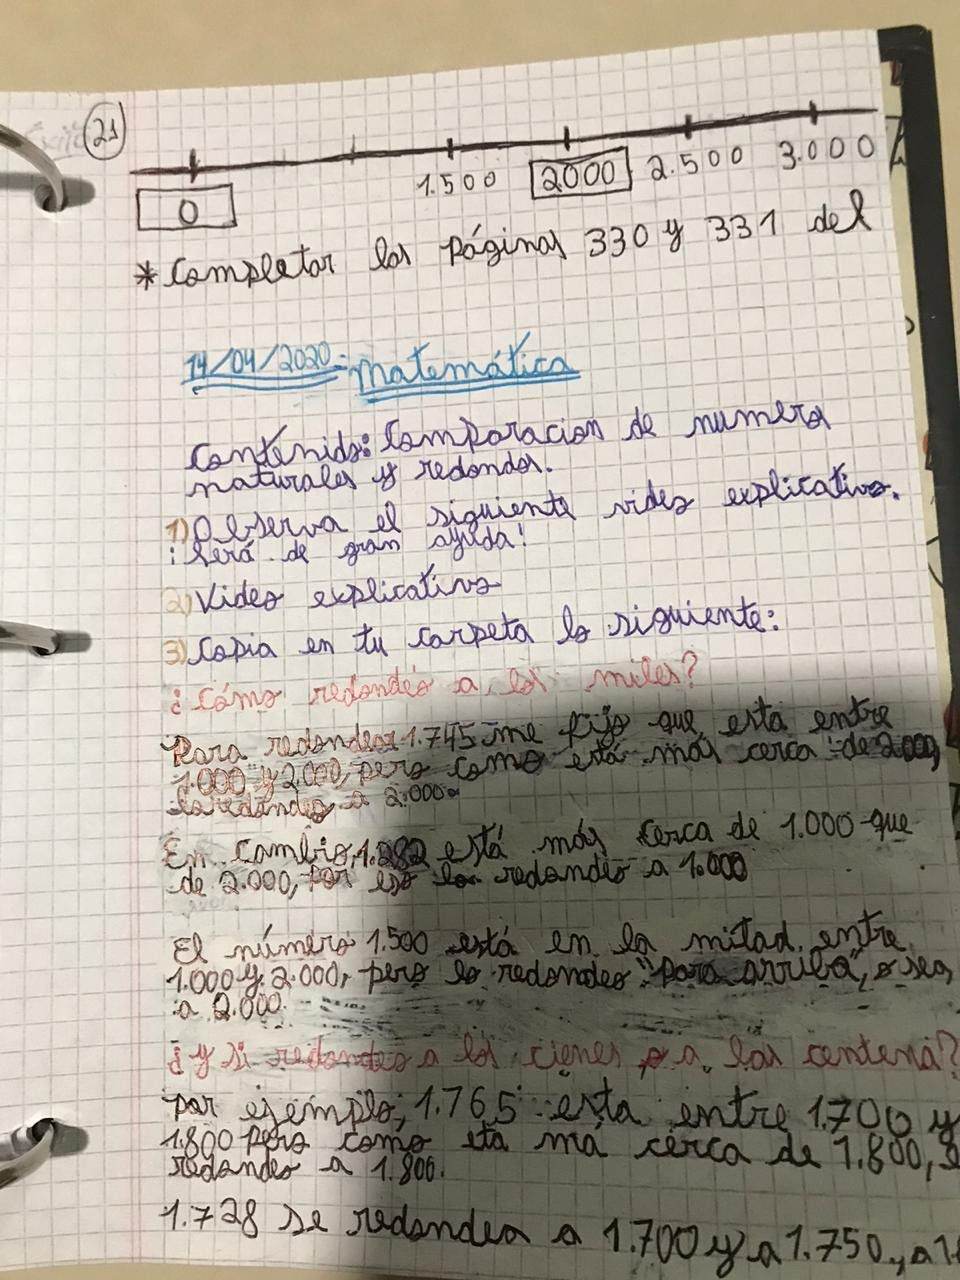 21
1.500 2000 2.500 3.000
0
* Completar las páginas 330 y 331 del
14/04/2020: Matemática
Contenido: Comparacion de numeros
naturales y redondos.
1) Observa el siguiente video explicativo.
¡Será de gran ayuda!
2) Video explicativo
3) Copia en tu carpeta lo siguiente:
¿Cómo redondeo a los miles?
Para redondear 1.745 me fijo que esta entre
1.000 y 2.000, pero como está más cerca de 2.000,
lo redondeo a 2.000.
En cambio, 1.282 está más cerca de 1.000 que
de 2.000, por eso lo redondeo a 1.000
El número 1.500 está en la mitad entre
1.000 y 2.000, pero lo redondeo "para arriba", o sea,
a 2.000.
¿y si redondeo a los cienes o a las centena?
Por ejemplo, 1.765 esta entre 1.700 y
1.800 pero como eta má cerca de 1.800,
redondeo a 1.800.
1.728 se redondea a 1.700 y a 1.750, a